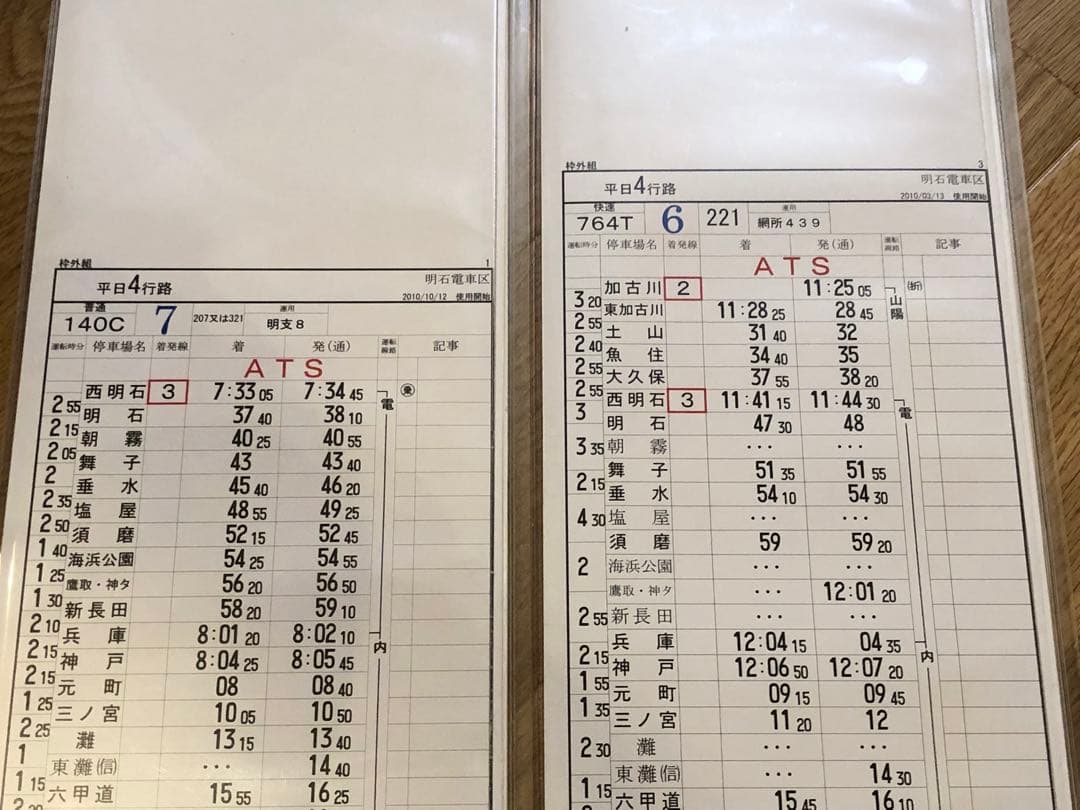 枠外組 1
平日4行路 明石電車区
2010/10/12 使用開始
普通 運用
140C 7 207又は321 明支8
運転時分 停車場名 着発線 着 発(通) 運転線路 記事
ATS
西明石 3 7:33 05 7:34 45 電 乗
2 55
明石 37 40 38 10
2 15
朝霧 40 25 40 55
2 05
舞子 43 43 40
2
垂水 45 40 46 20
2 35
塩屋 48 55 49 25
2 50
須磨 52 15 52 45
1 40
海浜公園 54 25 54 55
1 25
鷹取・神タ 56 20 56 50
1 30
新長田 58 20 59 10
2 10
兵庫 8:01 20 8:02 10 内
2 15
神戸 8:04 25 8:05 45
2 15
元町 08 08 40
1 25
三ノ宮 10 05 10 50
2 25
灘 13 15 13 40
1
東灘(信) ・・・ 14 40
1 15
六甲道 15 55 16 25
枠外組 3
平日4行路 明石電車区
2010/03/13 使用開始
快速 運用
764T 6 221 網所439
運転時分 停車場名 着発線 着 発(通) 運転線路 記事
ATS
加古川 2 11:25 05 山陽 (折)
3 20
東加古川 11:28 25 28 45
2 55
土山 31 40 32
2 40
魚住 34 40 35
2 55
大久保 37 55 38 20
2 55
西明石 3 11:41 15 11:44 30 電
3
明石 47 30 48
朝霧 ・・・ ・・・
3 35
舞子 51 35 51 55
2 15
垂水 54 10 54 30
塩屋 ・・・ ・・・
4 30
須磨 59 59 20
海浜公園 ・・・ ・・・
2
鷹取・神タ ・・・ 12:01 20
新長田 ・・・ ・・・
2 55
兵庫 12:04 15 04 35 内
2 15
神戸 12:06 50 12:07 20
1 55
元町 09 15 09 45
1 35
三ノ宮 11 20 12
灘 ・・・ ・・・
2 30
東灘(信) ・・・ 14 30
1 15
六甲道 15 45 16 10